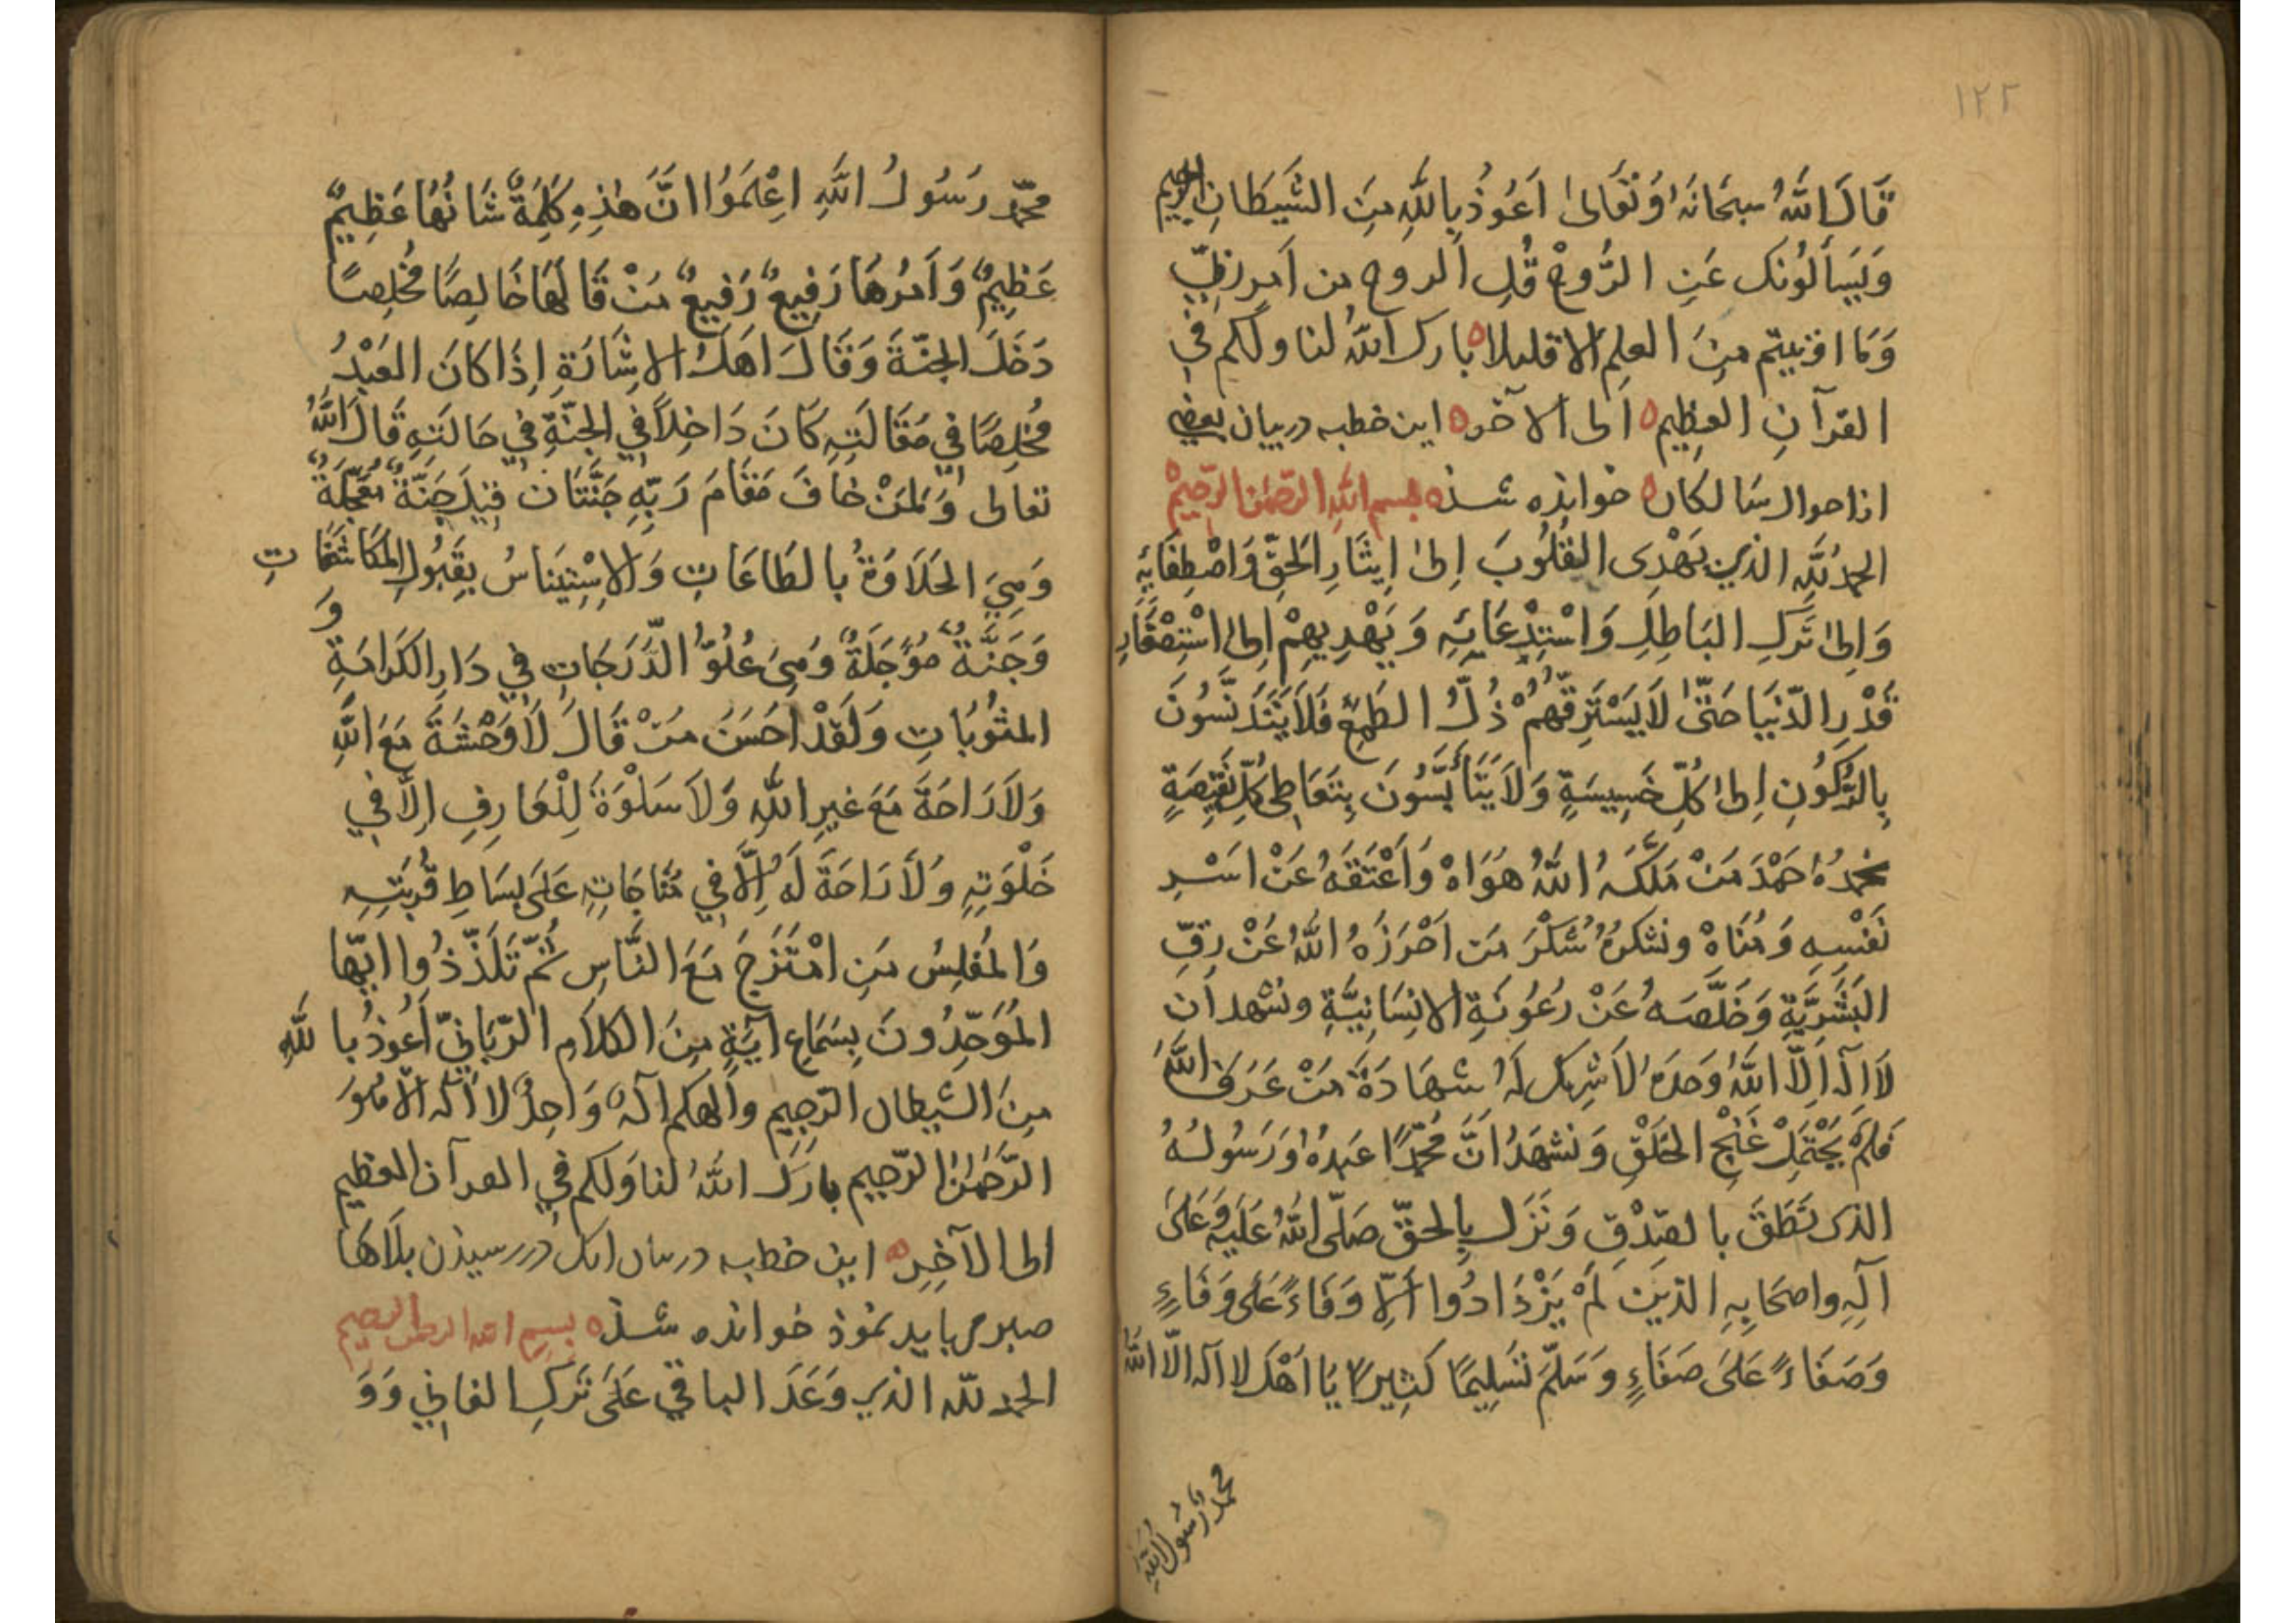 ١٢٢
قَالَ اللّٰهُ سبحَانَهُ وَتَعَالىٰ اَعُوذُ بِاللّٰهِ مِنَ الشَّيطَانِ الرجيم
وَيَسأَلُونَک عَنِ الرُّوحْ قُلِ الروح من اَمرِ رَبِّي
وَمَا اوتيتم مِنَ العلمِ الا قليلا بارک اللّٰهُ لنا ولكم في
القرآنِ العظِيم الى الآخره اين خطبه در بيان بعضى
از احوال سَالكان خوانده شذه بسم اللّٰهِ الرّحمٰن الرّحيم
الحمدُ للّٰهِ الذي يَهْدِى القُلُوبَ اِلىٰ اِيثَارِ الحَقِّ وَاصْطِفَايِهِ
وَالىٰ تَركِ البَاطِلِ وَاسْتِدْعَائِهِ وَيَهْدِيهِمْ اِلى اسْتِصْغَارِ
قَدْرِ الدّنيَا حَتّىٰ لَا يَسْتَرِقَّهُمْ ذُلُّ الطَمعِ فَلَا يَتَدَنَّسُونَ
بِالرُّكُونِ اِلىٰ كُلِّ خَسِيسَةٍ وَلَا يَتَأَبَّسُونَ بِتَعَاطِى كُلِّ نَقِيصَةٍ
نحمدُهُ حَمْدَ مَنْ مَلَّكَهُ اللّٰهُ هَوَاهْ وَاَعْتَقَهُ عَنْ اَسْرِ
نَفْسِهِ وَمُنَاهْ ونشكرُهُ شُكْرَ مَن اَحْرَزَهُ اللّٰهُ عَنْ رِقِّ
البَشَرِيَّةِ وَخَلَّصَهُ عَنْ رُعُونَةِ الانِسَانِيَّةِ ونشهد اَن
لَا اِلٓه اِلَّا اللّٰهُ وَحدَهُ لَا شريک لَهُ شهَادَةَ مَنْ عَرَفَ اللّٰهَ
فَلَمْ يَحْتَمِلْ غُنْجَ الخَلْقِ وَنشهَدُ انَّ مُحمّدًا عَبدُهُ وَرَسُولُهُ
الذى نَطَقَ بالصِدْقِ وَنَزَلَ بِالحقّ صَلّى اللّٰهُ عَلَيهِ وَعَلىٰ
آلِهِ واصحَابِهِ الذّينَ لَمْ يَزْدَادُوا اِلَّا وَفَاءً عَلى وَفَاءٍ
وَصَفَاءً عَلىَ صَفَاءٍ وَسَلمَّ تَسْلِيمًا كثِيرًا يَا اَهْلَ لا اله الّا اللّٰه
محمد رَسُول اللّٰهِ
محمّد رَسُولُ اللّٰهِ اعِلَمُوا انَّ هٰذِهِ كَلِمَةٌ شَانُهَا عَظِيمٌ
عَظِيمٌ وَاَمرُهَا رَفِيعٌ رَفِيعٌ مَنْ قَالهَا خَالِصًا مُخلِصًا
دَخَلَ الجنّةَ وَقَالَ اَهلُ الاشَارَةِ اِذَا كانَ العَبْدُ
مُخلِصًا في مَقَالَتِهِ كَانَ دَاخِلاً في الجنّةِ في حَالَتِهِ قَالَ اللّٰهُ
تعالى وَلمَنْ خَافَ مَقَامَ رَبّهِ جَنَّتَان قيلَ جَنّةٌ مُعَجّلَةٌ
وَهِيَ الحَلَاوَةُ بالطَاعَاتِ وَالاسْتِينَاسُ بِقَبُولِ المكَاشَفَاتِ
وَ
وَجَنَّةٌ مُؤَجَلَةٌ وَهِىَ عُلُوّ الدَّرَجَاتِ في دَارِ الكَرَامَةِ
المثُوبَاتِ وَلَقدْ احَسَنَ مَنْ قَالَ لَا وَحْشَةَ مَعَ اللّٰهِ
وَلَا رَاحَةَ مَعَ غيرِ اللّٰهِ وَلَا سَلْوَةَ لِلْعَارِفِ اِلَّا في
خَلْوَتِهِ وَلَا رَاحَةَ لَهُ اِلَّا في مُنَاجَاتِهِ عَلىَ بِسَاطِ قُربَتِهِ
وَالمُفلِسُ مَنِ امْتَزَجَ مَعَ النَّاسِ ثُمَّ تَلَذَّذُوا ايّها
المُوَحِّدُونَ بِسَمَاعِ آيَةٍ مِنَ الكَلاَمِ الرّبَانيّ اَعُوذُ باللّٰهِ
مِنَ الشيطان الرّجِيم والٰهكم آلهٌ وَاحِدٌ لا اله الّا هُوَ
الرَّحمٰنُ الرّحِيم بارَکَ اللّٰهُ لنا وَلكم في القرآن العظيم
الى الآخِرِه اين خطبه در بيان انک در رسيذن بلَاهَا
صبر مى بايد نموذ خوانده شذه بسم اللّٰه الرحمن الرحيم
الحمد للّٰه الذي وَعَدَ الباقي عَلىَ تَركِ الفاني وَوَ